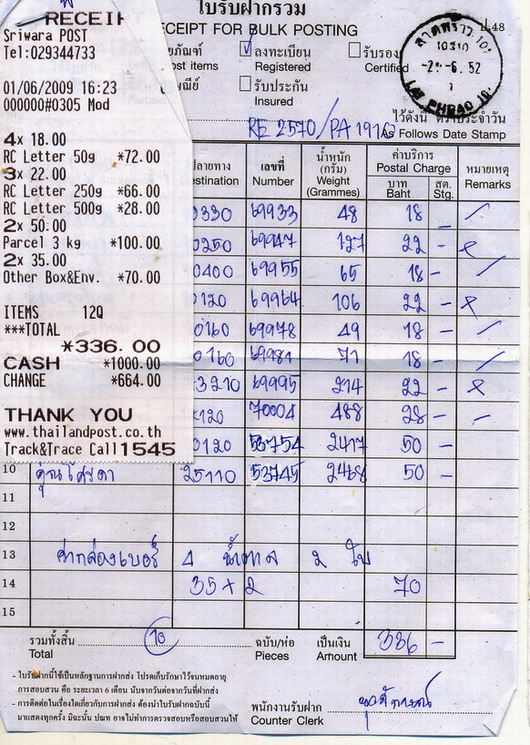 RECEIPT
Sriwara POST
Tel:029344733
01/06/2009 16:23
000000#0305 Mod
4x 18.00
RC Letter 50g *72.00
3x 22.00
RC Letter 250g *66.00
RC Letter 500g *28.00
2x 50.00
Parcel 3 kg *100.00
2x 35.00
Other Box&Env. *70.00
ITEMS 12Q
***TOTAL
*336.00
CASH *1000.00
CHANGE *664.00
THANK YOU
www.thailandpost.co.th
Track&Trace Call 1545
ใบรับฝากรวม
RECEIPT FOR BULK POSTING
ป.48
ลงทะเบียน
Registered
รับรอง
Certified
รับประกัน
Insured
ลาดพร้าว 101
-2-6.52
LAT PHRAO 101
RE 2570/PA 1910
ไว้ดังนี้ ตราประจำวัน
As Follows Date Stamp
ปลายทาง เลขที่ น้ำหนัก ค่าบริการ หมายเหตุ
Destination Number (กรัม) Weight (Grammes) Postal Charge บาท Baht สต. Stg. Remarks
69933 48 18 -
69947 127 22 -
69955 65 18 -
69964 106 22 -
69978 49 18 -
69981 71 18 -
69995 214 22 -
70004 488 28 -
53754 2417 50 -
10 25110 53745 2468 50 -
11
12
13 ค่ากล่องเบอร์ 4 น้ำตาล 2 ใบ
14 35 x 2 70
15
รวมทั้งสิ้น 10 ฉบับ/ห่อ เป็นเงิน 336 -
Total Pieces Amount
- ใบรับฝากนี้ใช้เป็นหลักฐานการฝากส่ง โปรดเก็บรักษาไว้จนหมดอายุ
การสอบสวน คือ ระยะเวลา 6 เดือน นับจากวันต่อจากวันที่ฝากส่ง
- การติดต่อในเรื่องใดเกี่ยวกับการฝากส่ง ต้องนำใบรับฝากฉบับนี้
มาแสดงทุกครั้ง มิฉะนั้น ปณท อาจไม่ทำการตรวจสอบหรือสอบสวนให้
พนักงานรับฝาก
Counter Clerk